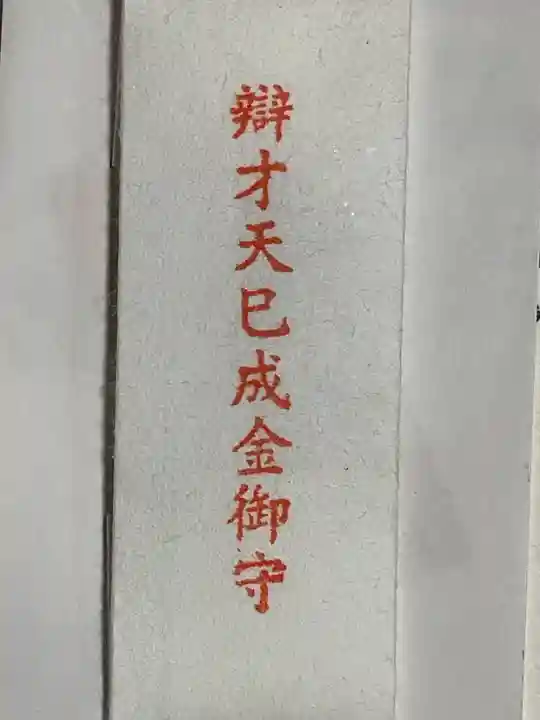 辯才天巳成金御守